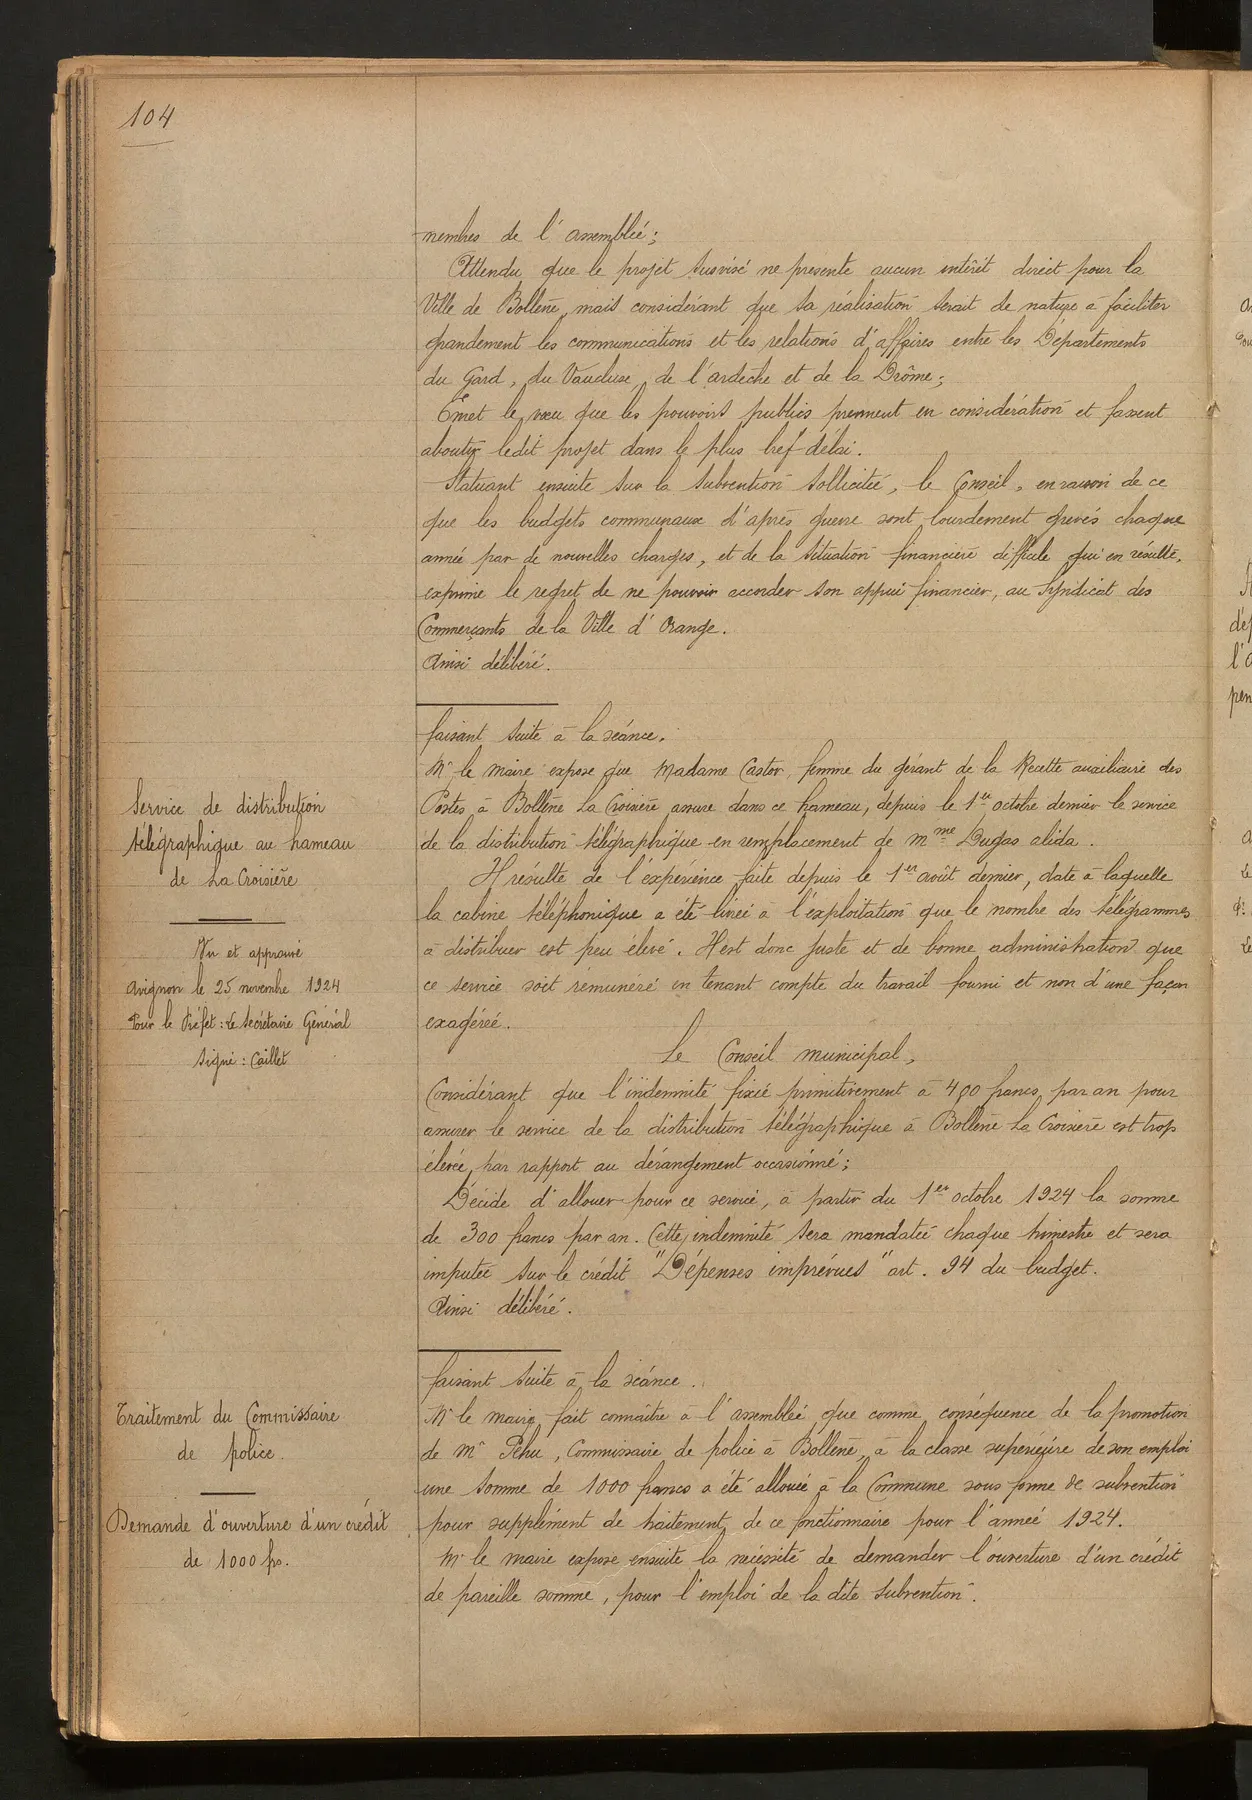 104
membres de l'assemblée;
Attendu que le projet susvisé ne présente aucun intérêt direct pour la
Ville de Bollène, mais considérant que sa réalisation serait de nature à faciliter
grandement les communications et les relations d'affaires entre les Départements
du Gard, du Vaucluse, de l'ardèche et de la Drôme;
Emet le vœu que les pouvoirs publics prennent en considération et fassent
aboutir ledit projet dans le plus bref délai.
Statuant ensuite sur la subvention sollicitée, le Conseil, en raison de ce
que les budgets communaux d'après guerre sont lourdement grevés chaque
année par de nouvelles charges, et de la situation financière difficile qui en résulte,
exprime le regret de ne pouvoir accorder son appui financier, au Syndicat des
Commerçants de la Ville d'Orange.
Ainsi délibéré.
faisant suite à la séance.
Mr le maire expose que Madame Castor, femme du gérant de la Recette auxiliaire des
Postes à Bollène La Croisière assure dans ce hameau, depuis le 1er octobre dernier le service
de la distribution télégraphique en remplacement de Mme Dugas alida.
Il résulte de l'expérience faite depuis le 1er août dernier, date à laquelle
la cabine téléphonique a été livrée à l'exploitation que le nombre des télégrammes
à distribuer est peu élevé. Il est donc juste et de bonne administration que
ce service soit rémunéré en tenant compte du travail fourni et non d'une façon
exagérée.
Le Conseil municipal,
Considérant que l'indemnité fixée primitivement à 400 francs par an pour
assurer le service de la distribution télégraphique à Bollène La Croisière est trop
élevée par rapport au dérangement occasionné;
Décide d'allouer pour ce service, à partir du 1er octobre 1924 la somme
de 300 francs par an. Cette indemnité sera mandatée chaque trimestre et sera
imputée sur le crédit "Dépenses imprévues" art. 94 du budget.
Ainsi délibéré.
faisant suite à la séance.
Mr le maire fait connaître à l'assemblée que comme conséquence de la promotion
de Mr Pehu, Commissaire de police à Bollène, à la classe supérieure de son emploi
une somme de 1000 francs a été allouée à la Commune sous forme de subvention
pour supplément de traitement de ce fonctionnaire pour l'année 1924.
Mr le maire expose ensuite la nécessité de demander l'ouverture d'un crédit
de pareille somme, pour l'emploi de la dite subvention.
Service de distribution
télégraphique au hameau
de La Croisière
Vu et approuvé
Avignon le 25 novembre 1924
Pour le Préfet: Le Secrétaire Général
Signé: Caillet
Traitement du Commissaire
de police.
Demande d'ouverture d'un crédit
de 1000 frs.